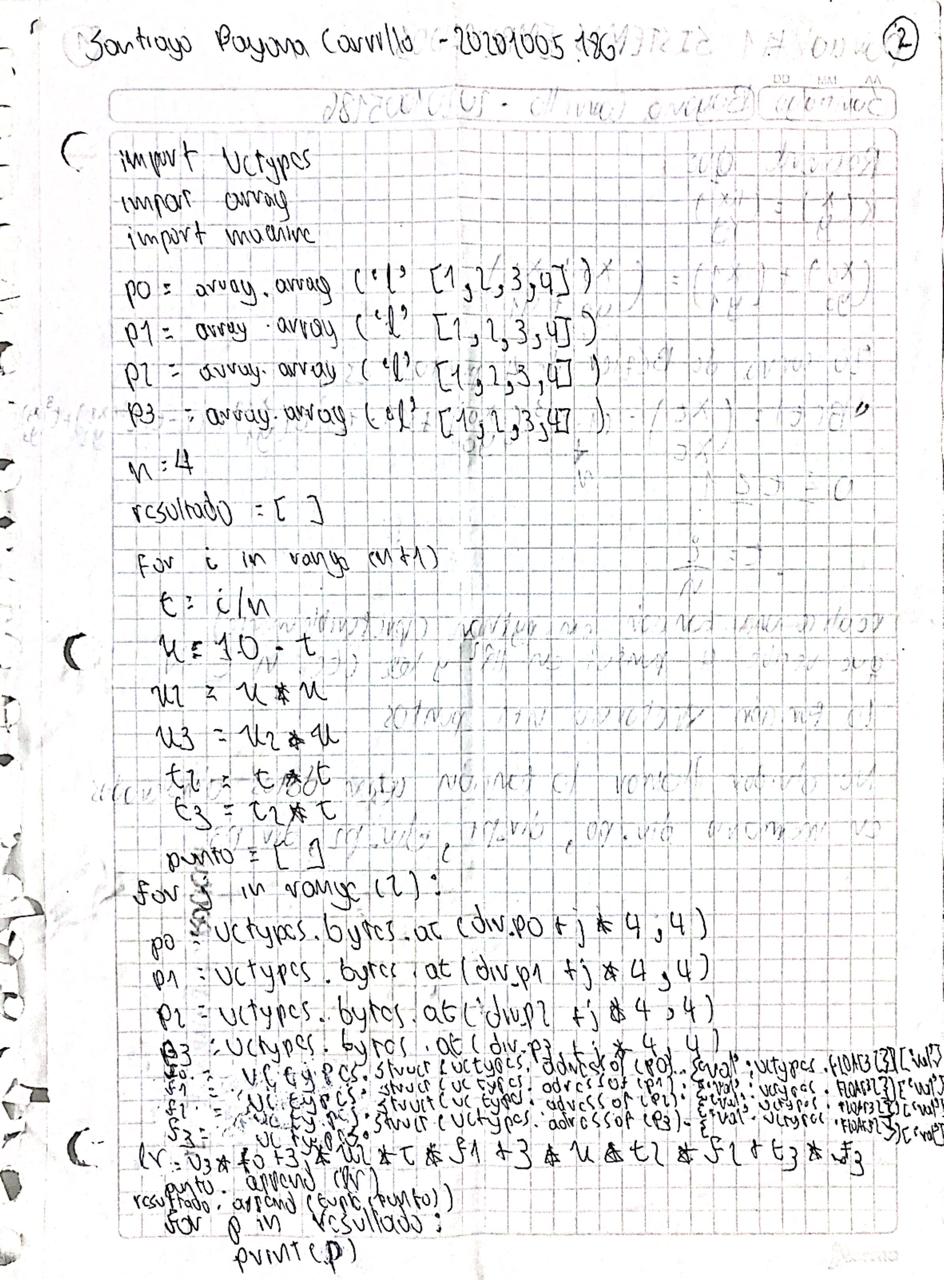 Santiago Bayona Carrillo - 20201005186
2
import Uctypes
import array
import machine
p0 = array.array ('l' [1,2,3,4])
p1 = array.array ('l' [1,2,3,4])
p2 = array.array ('l' [1,2,3,4])
p3 = array.array ('l' [1,2,3,4])
n=4
resultado = [ ]
for i in range (n+1)
t = i/n
u = 1.0 - t
u2 = u * u
u3 = u2 * u
t2 = t * t
t3 = t2 * t
punto = [ ]
for in range (2):
p0 = Uctypes.bytes.at (div.p0 + j * 4, 4)
p1 = uctypes.bytes.at (div.p1 + j * 4, 4)
p2 = uctypes.bytes.at (div.p2 + j * 4, 4)
p3 = uctypes.bytes.at (div.p3 + j * 4, 4)
f0 = uctypes.struct (uctypes.adressof (p0). val : uctypes.FLOAT32
f1 = uctypes.struct (uctypes.adressof (p1). val : uctypes.FLOAT32
f2 = uctypes.struct (uctypes.adressof (p2). val : uctypes.FLOAT32
f3 = uctypes.struct (uctypes.adressof (p3). val : uctypes.FLOAT32
br = u3 * f0 + 3 * u2 * t * f1 + 3 * u * t2 * f2 + t3 * f3
punto.append (br)
resultado.append (tuple(punto))
for p in resultado:
print(p)